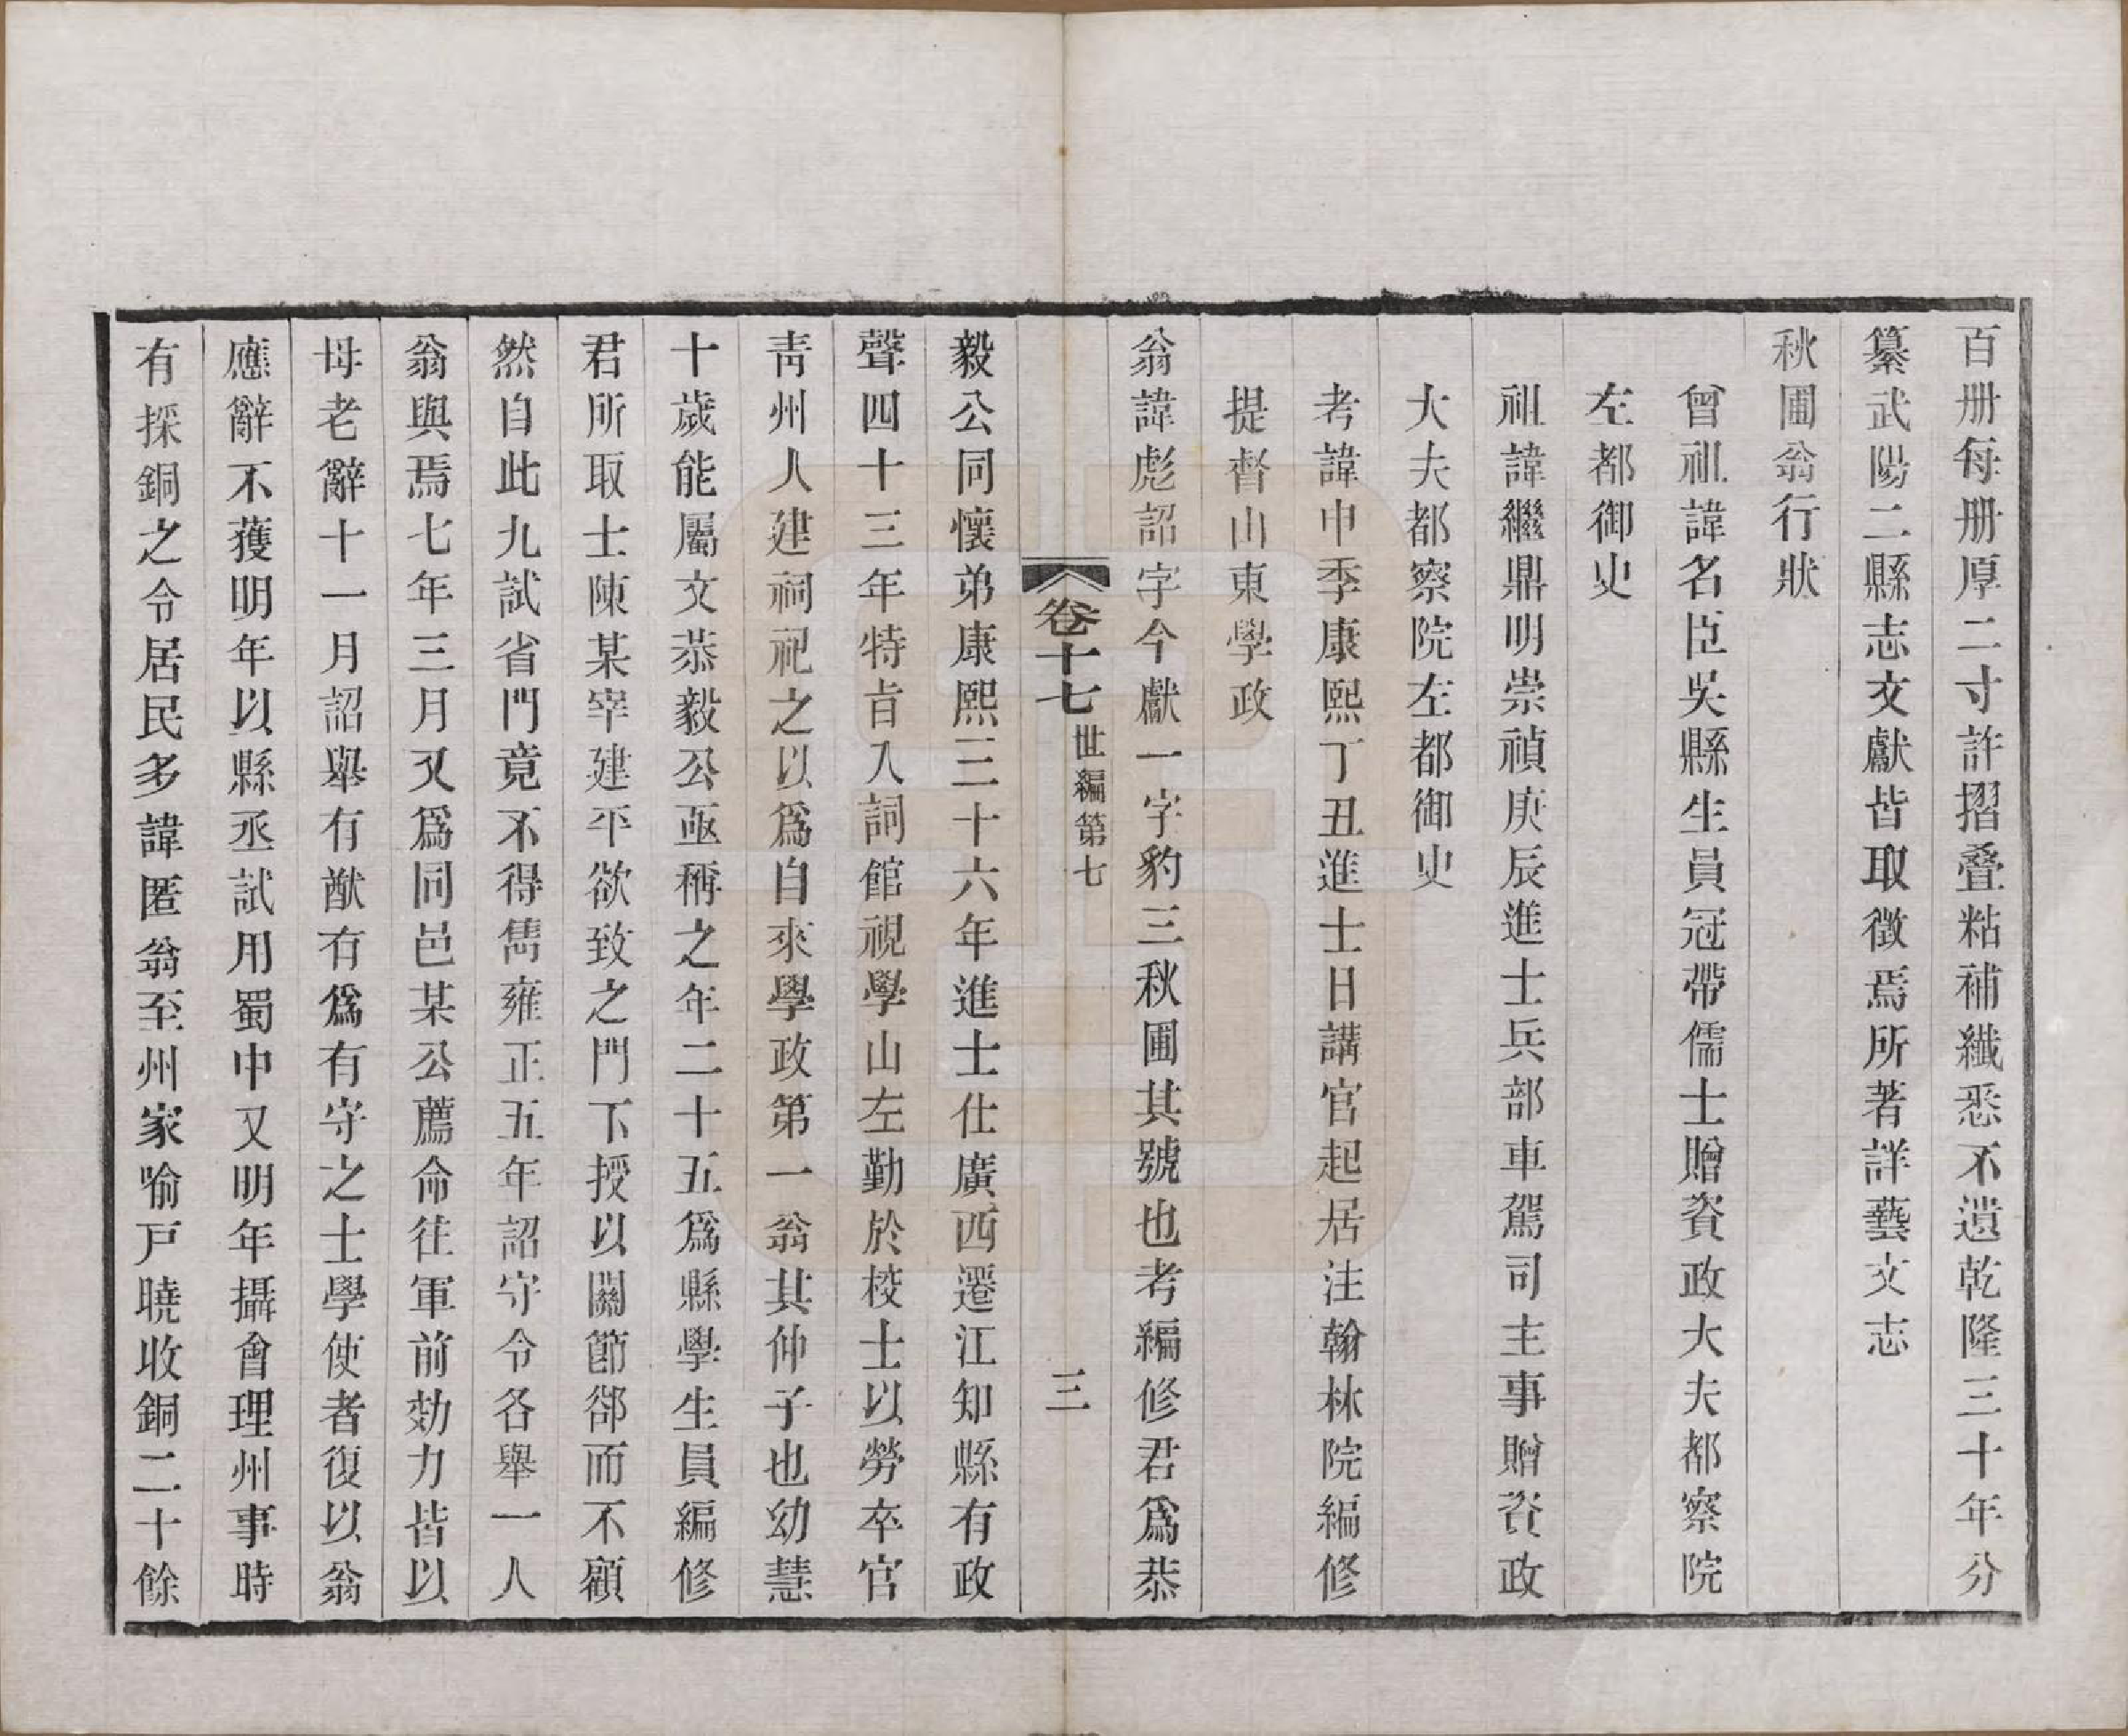 百册每册厚二寸許摺叠粘補纖悉不遺乾隆三十年分
纂武陽二縣志文獻皆取徵焉所著詳藝文志
秋圃翁行狀
曾祖諱名臣吳縣生員冠帶儒士贈資政大夫都察院
左都御史
祖諱繼鼎明崇禎庚辰進士兵部車駕司主事贈資政
大夫都察院左都御史
考諱申季康熙丁丑進士日講官起居注翰林院編修
提督山東學政
翁諱彪詔字今獻一字豹三秋圃其號也考編修君爲恭
卷十七
世編第七
三
毅公同懷弟康熙三十六年進士仕廣西遷江知縣有政
聲四十三年特旨入詞館視學山左勤於校士以勞卒官
靑州人建祠祀之以爲自來學政第一翁其仲子也幼慧
十歲能屬文恭毅公亟稱之年二十五爲縣學生員編修
君所取士陳某宰建平欲致之門下授以關節郤而不顧
然自此九試省門竟不得雋雍正五年詔守令各舉一人
翁與焉七年三月又爲同邑某公薦侖往軍前効力皆以
母老辭十一月詔舉有猷有爲有守之士學使者復以翁
應辭不獲明年以縣丞試用蜀中又明年攝會理州事時
有採銅之令居民多諱匿翁至州家喻戸曉收銅二十餘